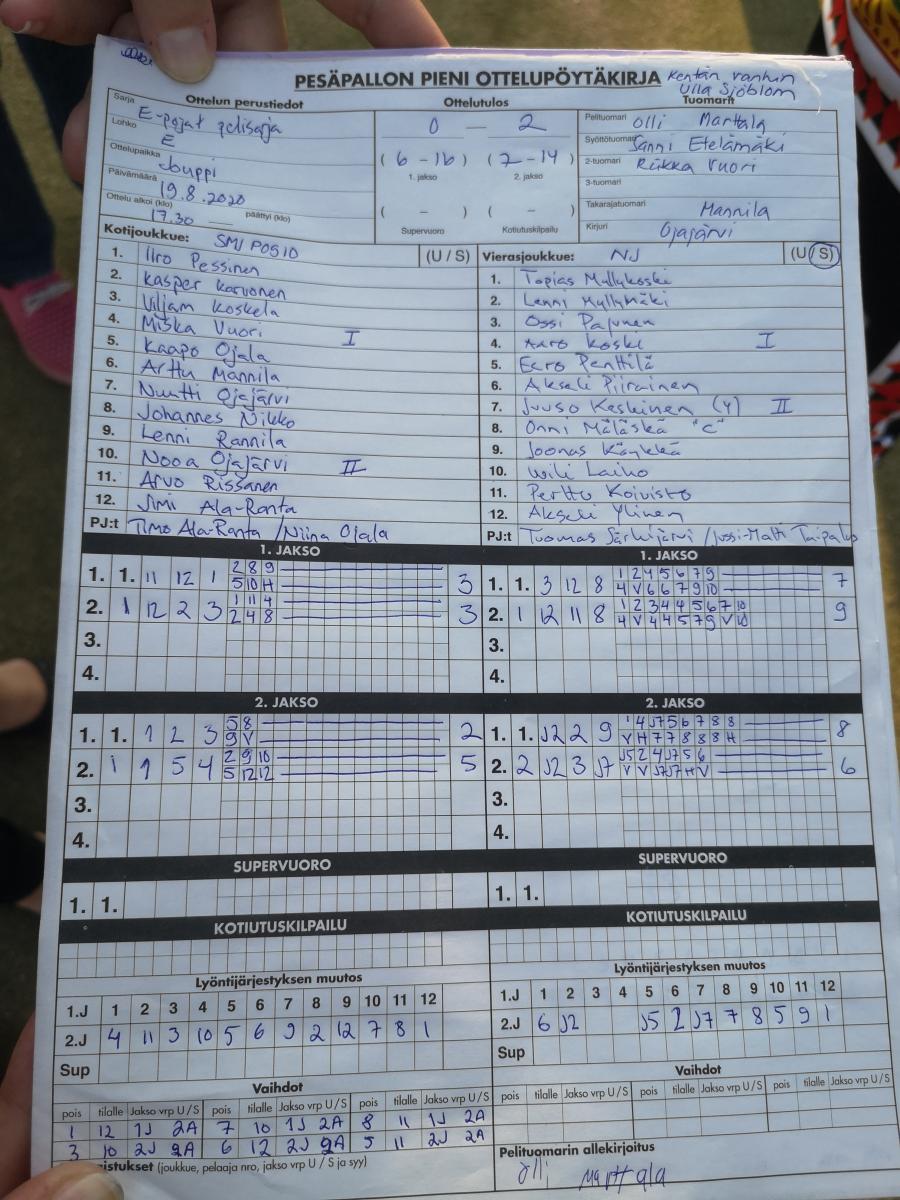 PESÄPALLON PIENI OTTELUPÖYTÄKIRJA
Kentän vanhin
Ulla Sjöblom
Ottelun perustiedot
Sarja E-pojat
Lohko E
Ottelupaikka
Päivämäärä 19.8.2020
Ottelu alkoi (klo) 17.30 päättyi (klo)
Ottelutulos
0 — 2
(6 - 16) (7 - 14)
1. jakso 2. jakso
( - ) ( - )
Supervuoro Kotiutuskilpailu
Tuomarit
Pelituomari Olli Marttala
Syöttötuomari Sanni Etelämäki
2-tuomari Riikka Vuori
3-tuomari
Takarajatuomari Mannila
Kirjuri Ojajärvi
Kotijoukkue: SMJ POSIO (U / S)
1. Iiro Pessinen
2. Kasper Karvonen
3. Viljam Koskela
4. Miska Vuori I
5. Kaapo Ojala
6. Arttu Mannila
7. Nuutti Ojajärvi
8. Johannes Nikko
9. Lenni Rannila
10. Nooa Ojajärvi II
11. Arvo Rissanen
12. Jimi Ala-Ranta
PJ:t Timo Ala-Ranta / Niina Ojala
Vierasjoukkue: NJ (U / S)
1. Topias Myllykoski
2. Lenni Myllymäki
3. Ossi Pajunen
4. Aaro Koski I
5. Eero Penttilä
6. Akseli Piirainen
7. Juuso Keskinen (Y) II
8. Onni Mäläskä "C"
9. Joonas Käykkä
10. Wili Laiho
11. Perttu Koivisto
12. Akseli Ylinen
PJ:t Tuomas Särkijärvi / Jussi-Matti Taipalus
1. JAKSO
1. 1. 11 12 1 2 8 9 3
5 10 H
2. 1 12 2 3 1 11 4 3
2 4 8
3.
4.
1. JAKSO
1. 1. 3 12 8 1 2 4 5 6 7 9 7
4 V 6 6 7 9 10
2. 1 12 11 8 1 2 3 4 4 5 6 7 10 9
4 V 4 4 5 7 9 V 10
3.
4.
2. JAKSO
1. 1. 1 2 3 5 8 2
9 V
2. 1 1 5 4 2 9 10 5
5 12 12
3.
4.
2. JAKSO
1. 1. J2 2 9 1 4 J7 5 6 7 8 8 8
V H 7 7 8 8 8 H
2. 2 J2 3 J7 J5 2 4 J7 5 6 6
V V J7 J7 H V
3.
4.
SUPERVUORO
1. 1.
SUPERVUORO
1. 1.
KOTIUTUSKILPAILU
KOTIUTUSKILPAILU
Lyöntijärjestyksen muutos
1.J 1 2 3 4 5 6 7 8 9 10 11 12
2.J 4 11 3 10 5 6 9 2 12 7 8 1
Sup
Lyöntijärjestyksen muutos
1.J 1 2 3 4 5 6 7 8 9 10 11 12
2.J 6 J2 J5 2 J7 7 8 5 9 1
Sup
Vaihdot
pois tilalle Jakso vrp U / S pois tilalle Jakso vrp U / S pois tilalle Jakso vrp U / S
1 12 1J 2A 7 10 1J 2A 8 11 1J 2A
3 10 2J 2A 6 12 2J 2A 5 11 2J 2A
Vaihdot
pois tilalle Jakso vrp U / S pois tilalle Jakso vrp U / S pois tilalle Jakso vrp U / S
(joukkue, pelaaja nro, jakso vrp U / S ja syy)
Pelituomarin allekirjoitus
Olli Marttala